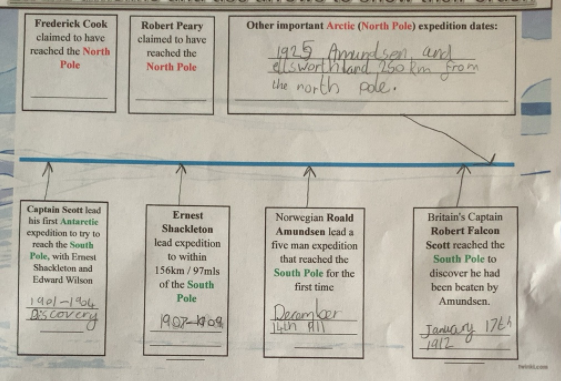 Frederick Cook
claimed to have
reached the North
Pole
Robert Peary
claimed to have
reached the
North Pole
Other important Arctic (North Pole) expedition dates:
1925 Amundsen and
ellsworth land 250 km from
the north pole.
Captain Scott lead
his first Antarctic
expedition to try to
reach the South
Pole, with Ernest
Shackleton and
Edward Wilson
1901-1904
Discovery
Ernest
Shackleton
lead expedition
to within
156km / 97mls
of the South
Pole
1907-1909
Norwegian Roald
Amundsen lead a
five man expedition
that reached the
South Pole for the
first time
December
14th
Britain's Captain
Robert Falcon
Scott reached the
South Pole to
discover he had
been beaten by
Amundsen.
January 17th
1912
twinkl.com